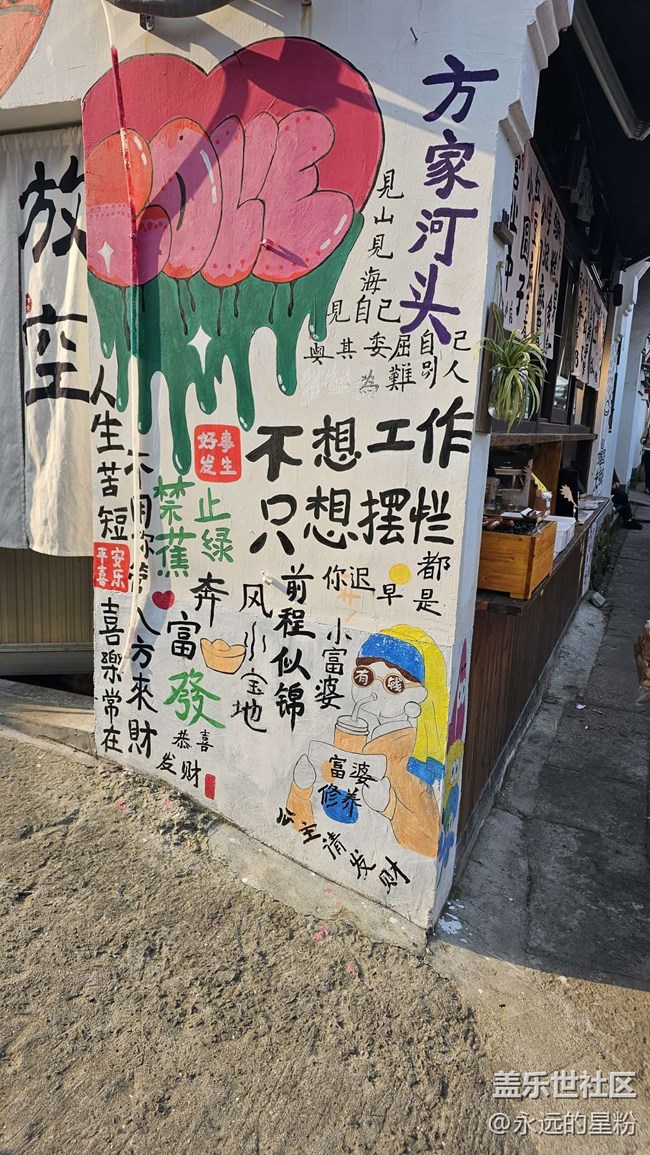 方家河头
見山見海
見自己
與其委屈自己
為難别人
放空
好事
发生
不想工作
只想摆烂
人生苦短
禁止
蕉绿
平安
喜乐
喜樂常在
八方來財
奔富
發
恭喜
发财
风水宝地
前程似锦
你迟早都是
小富婆
有钱
富婆
修养
公主请发财
盖乐世社区
@永远的星粉